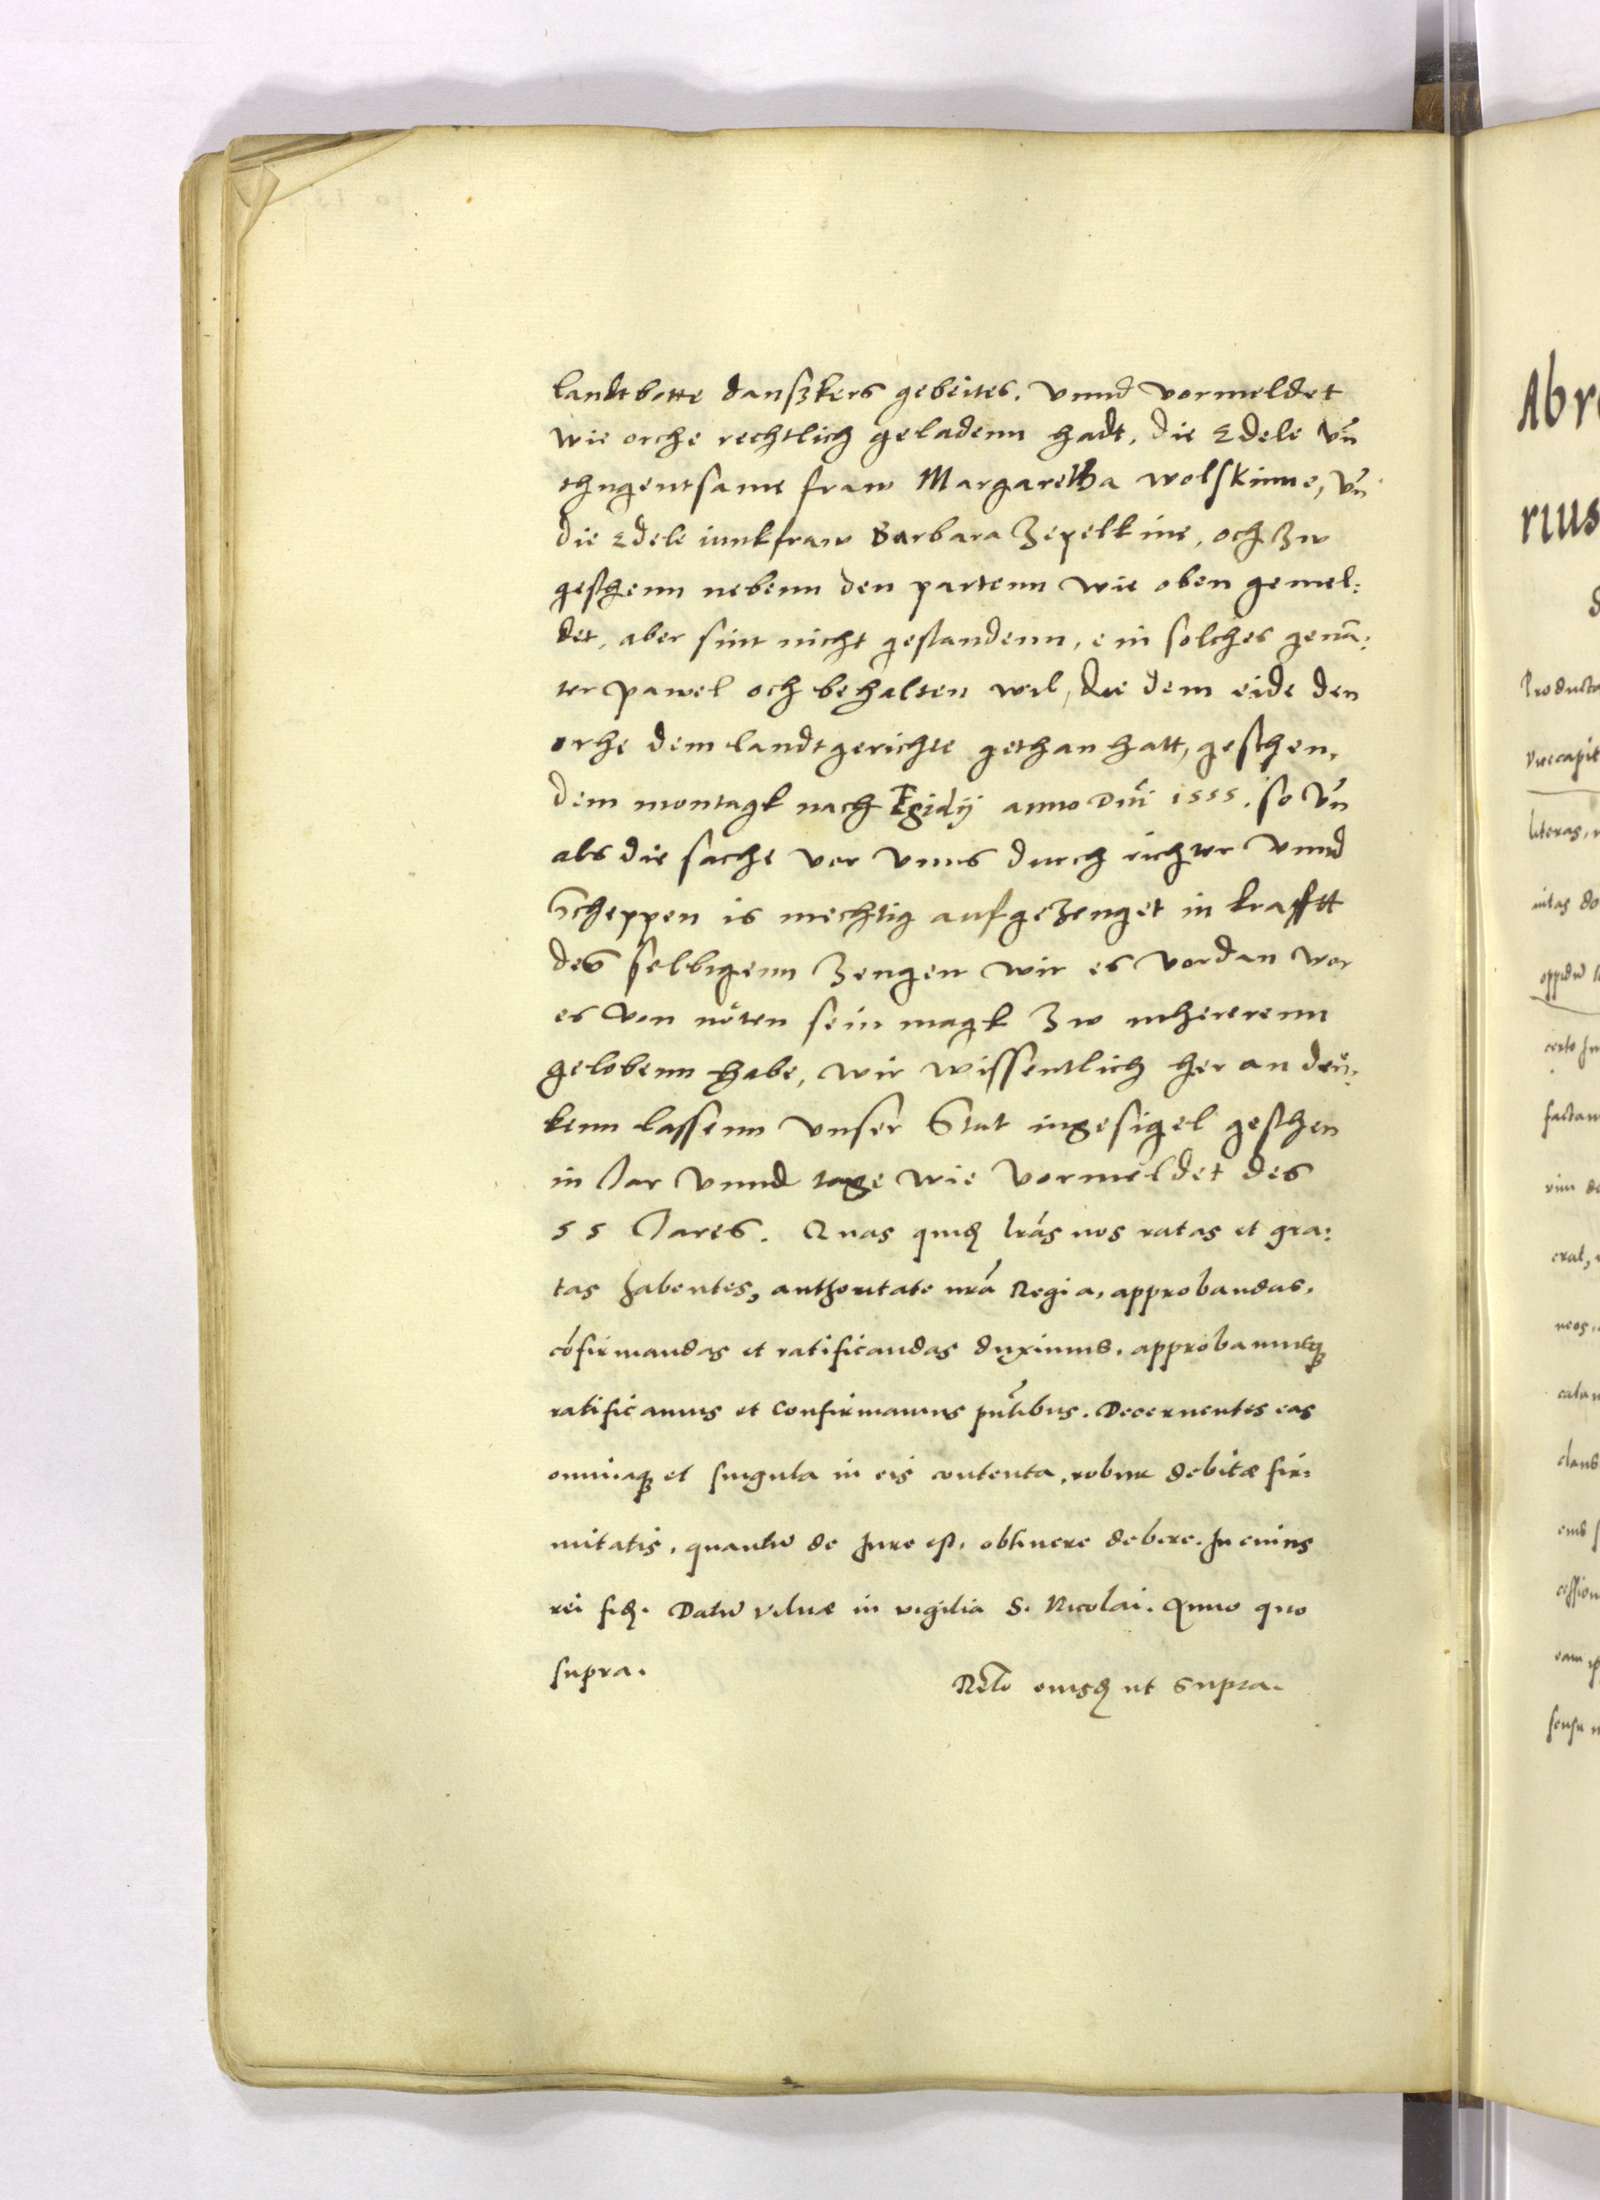 landtbotte danszkers gebeites. vnnd vormeldet
wie orche rechtlich geladenn hadt, die Edele vn̄
thugentsame fraw Margaretha Wolskinne, vn̄
die Edele iunkfraw Barbara Zepelkine, och zw
geschenn nebenn den partenn wie oben gemel:
det, aber sint nicht gestandenn, ein solches genā:
ter pawel och behalten wil, die dem eide den
orhe dem landtgerichte gethan hatt, geschen,
dem montagk nach Egidij anno Dn̄i 1555. so vn̄
als die sache vor vnns durch richter vnnd
Scheppen is mechtig aufgezeuget in krafftt
des selbigenn zeugen wir es vordan wor
es von nöten sein magk zw mhererenn
gelobenn habe, wir wissentlich her an den:
kenn lassenn vnser Stat ingesigel geschen
in Jar vnnd tage wie vormeldet des
55 Jares. Quas quidẽ lrãs nos ratas et gra:
tas habentes, authoritate nrã Regia, approbandas,
cõfirmandas et ratificandas duximus, approbamusq̃
ratificamus et confirmamus pn̄tibus. Decernentes eas
omniaq̃ et singula in eis contenta, robur debitæ fir:
mitatis, quantũ de Jure est, obtinere debere. In cuius
rei fidẽ. Datũ Vilnæ in vigilia S. Nicolai. Anno quo
supra.
Relõ eiusdẽ ut supra.
Abr
rius
Producta
literas,
oppidũ
certo